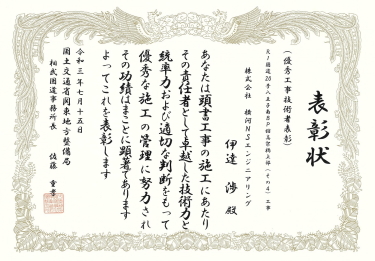 表彰状
(優秀工事技術者表彰)
株式会社 横河NSエンジニアリング
伊達 渉 殿
あなたは頭書工事の施工にあたり
その責任者として卓越した技術力と
統率力および適切な判断をもって
優秀な施工の管理に努力され
その功績はまことに顕著であります
よってこれを表彰します
令和三年七月十五日
国土交通省関東地方整備局
相武国道事務所長
佐藤 重孝